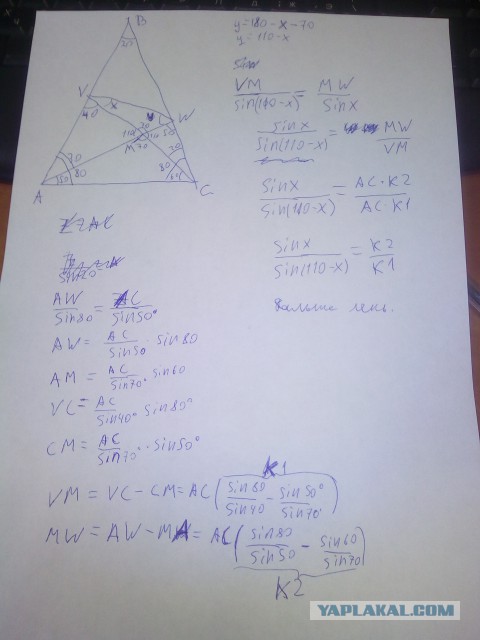 B
20
V
x
40
y
W
50
30
110
110
M
70
70
20
50
80
80
A
C
y=180-x-70
y=110-x
VM/sin(110-x) = MW/sin x
sin x/sin(110-x) = MW/VM
sin x/sin(110-x) = AC·K2/AC·K1
sin x/sin(110-x) = K2/K1
Дальше лень.
AW/sin80 = AC/sin50°
AW = AC/sin50 · sin80
AM = AC/sin70 · sin60
VC = AC/sin40° · sin80°
CM = AC/sin70 · sin50°
K1
VM = VC - CM = AC(sin80/sin40 - sin50°/sin70)
MW = AW - MA = AC(sin80/sin50 - sin60/sin70)
K2
YAPLAKAL.COM